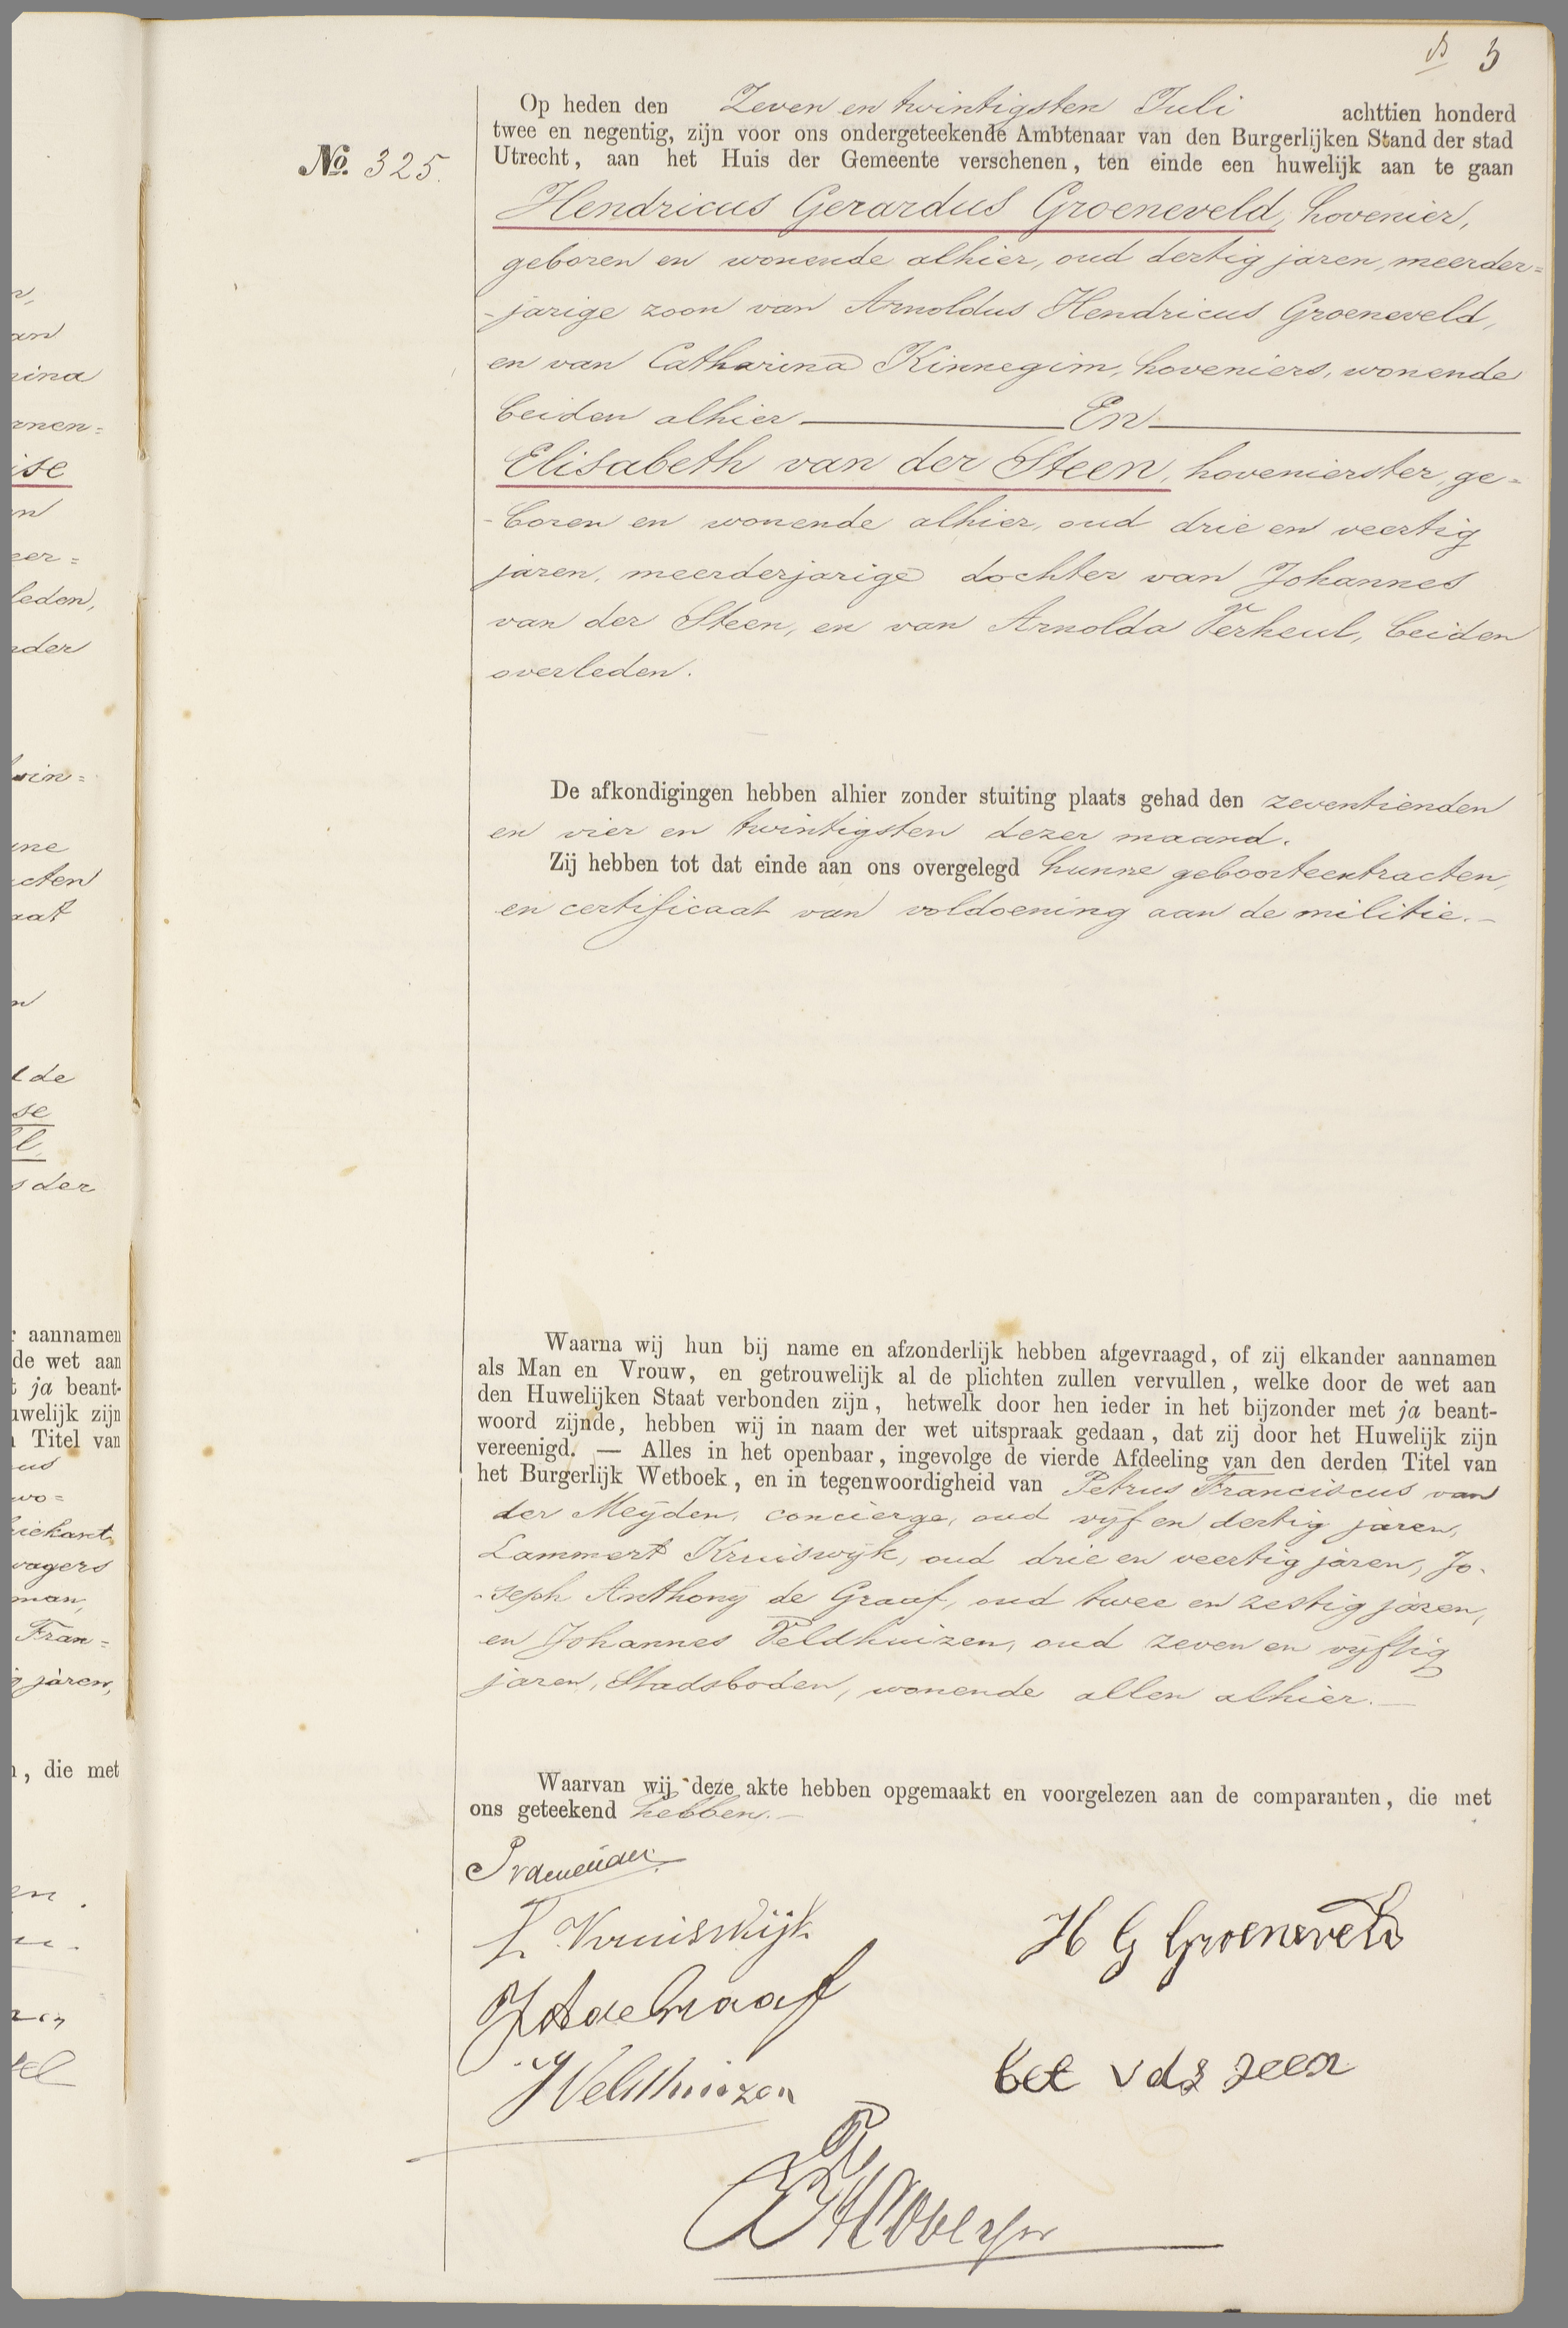 3
Op heden den Zeven en twintigsten Juli achttien honderd
twee en negentig, zijn voor ons ondergeteekende Ambtenaar van den Burgerlijken Stand der stad
Utrecht, aan het Huis der Gemeente verschenen, ten einde een huwelijk aan te gaan
No. 325.
Hendricus Gerardus Groeneveld, hovenier,
geboren en wonende alhier, oud dertig jaren, meerder=
-jarige zoon van Arnoldus Hendricus Groeneveld,
en van Catharina Kinnegim, hoveniers, wonende
beiden alhier En
Elisabeth van der Steen, hovenierster, ge=
-boren en wonende alhier, oud drie en veertig
jaren, meerderjarige dochter van Johannes
van der Steen, en van Arnolda Verheul, beiden
overleden.
De afkondigingen hebben alhier zonder stuiting plaats gehad den zeventienden
en vier en twintigsten dezer maand.
Zij hebben tot dat einde aan ons overgelegd hunne geboorteextracten,
en certificaat van voldoening aan de militie.-
Waarna wij hun bij name en afzonderlijk hebben afgevraagd, of zij elkander aannamen
als Man en Vrouw, en getrouwelijk al de plichten zullen vervullen, welke door de wet aan
den Huwelijken Staat verbonden zijn, hetwelk door hen ieder in het bijzonder met ja beant-
woord zijnde, hebben wij in naam der wet uitspraak gedaan, dat zij door het Huwelijk zijn
vereenigd. — Alles in het openbaar, ingevolge de vierde Afdeeling van den derden Titel van
het Burgerlijk Wetboek, en in tegenwoordigheid van Petrus Franciscus van
der Meijden, concierge, oud vijf en dertig jaren,
Lammert Kruiswijk, oud drie en veertig jaren, Jo-
-seph Anthony de Graaf, oud twee en zestig jaren,
en Johannes Veldhuizen, oud zeven en vijftig
jaren, Stadsboden, wonende allen alhier.-
Waarvan wij deze akte hebben opgemaakt en voorgelezen aan de comparanten, die met
ons geteekend hebben.-
L. Kruiswijk
H G Groeneveld
J A de Graaf
J Veldhuizen
bet v d steen